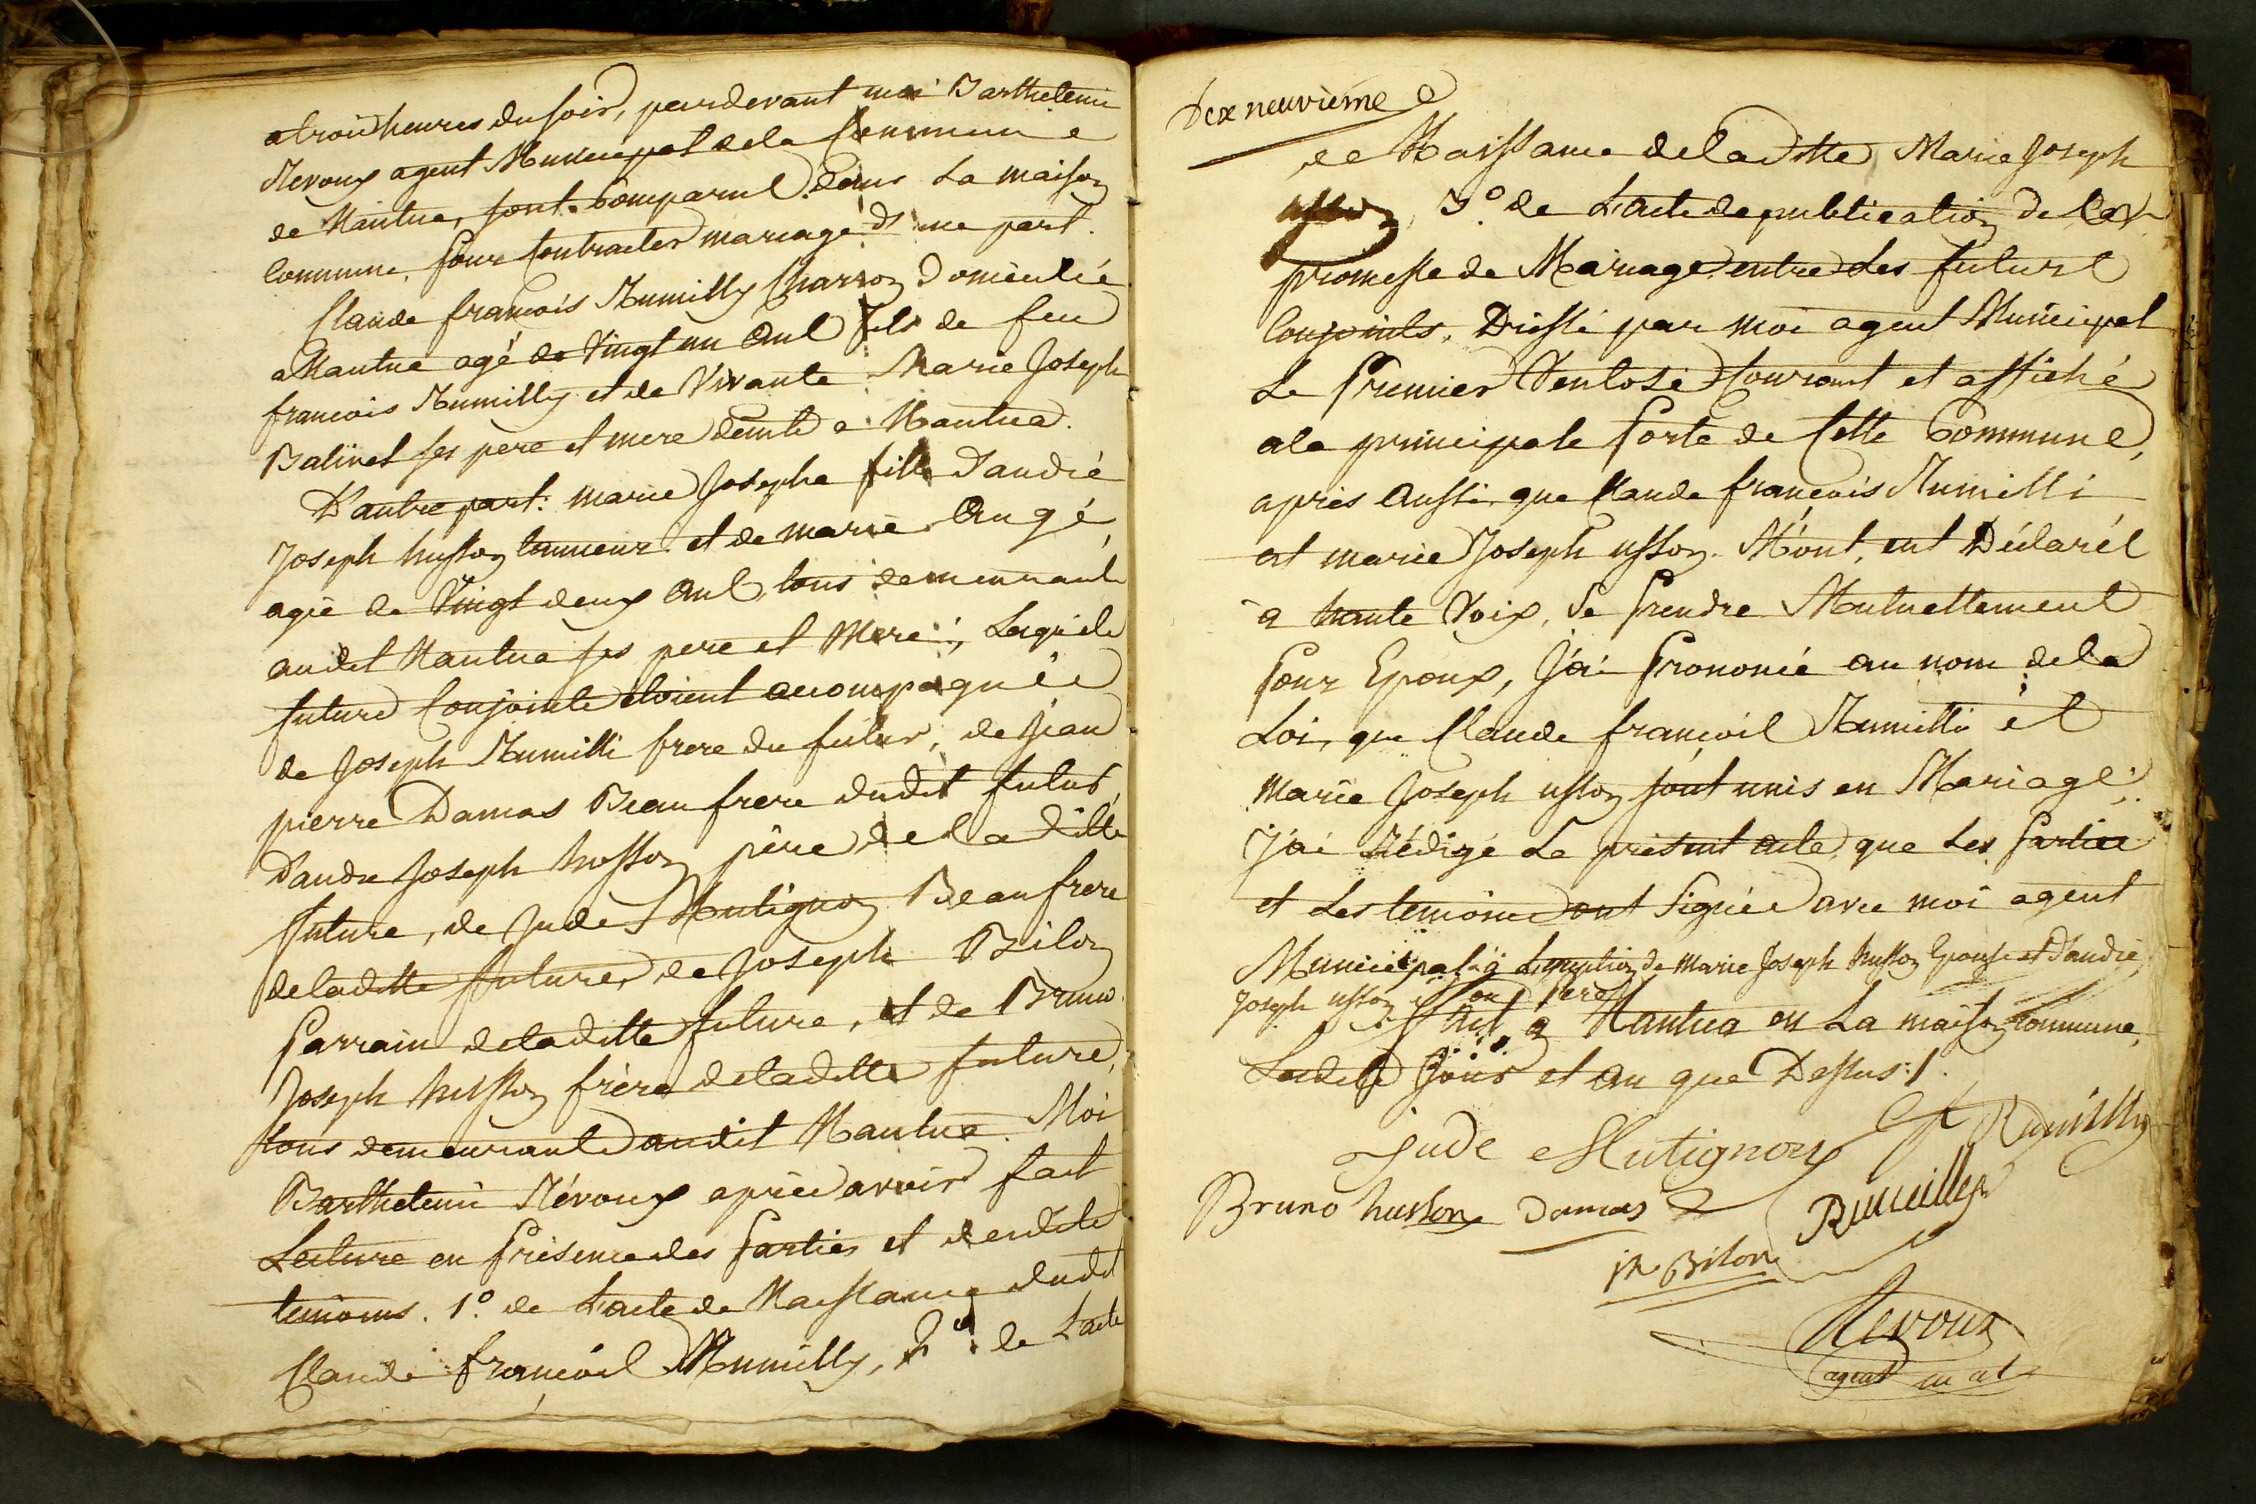 atrois heures du soir, pardevant moi Barthelemi
Nevoux agent Municipal de la Commune
de Nantua, sont Comparus dans La maison
Commune, pour Contracter mariage d'une part.
Claude françois Rumilly Charron Domicilié
a Nantua agé de Vingt un ans fils de feu
françois Rumilly et de Vivante Marie Joseph
Balivet ses pere et mere demte a Nantua.
D'autre part: marie Josephe fille d'andré
Joseph husson tanneur et de marie Angé
agée de Vingt deux ans, tous demeurants
audit Nantua ses pere et Mere; Lesquels
futurs Conjoints étoient acompagnés
de Joseph Rumilli frere du futur, de Jean
pierre Damas Beau frere dudit futur,
d'andré Joseph husson père de la ditte
future, de Jude Mutignon Beaufrere
deladitte future, de Joseph Bilon
Parrain deladitte future, et de Bruno
Joseph husson frère deladitte future,
tous demeurants audit Nantua. Moi
Barthelemi Névoux après avoir fait
Lecture en Présence des Parties et desdits
temoins. 1º de L'acte de Naissance dudit
Claude françois Rumilly, 2º de L'acte
Dix neuvième
de Naissance de laditte Marie Joseph
usson, 3º de L'acte de publication de la
promesse de Mariage entre Les futurs
Conjoints, Dressé par moi agent Municipal
Le Premier Ventose Courant et affiché
a la principale Porte de Cette Commune,
après aussi que Claude françois Rumilli
et marie Joseph usson. M'ont, ent Déclarés
à haute Voix, Se Prendre Mutuellement
Pour Epoux, J'ai Prononcé au nom de la
Loi, que Claude françois Rumilli et
Marie Joseph usson sont unis en Mariage;
J'ai Rédigé Le présent acte, que Les Parties
et Les temoins ont Signés avec moi agent
Municipal à L'exeption de Marie Joseph husson Epouse et d'andré
Joseph usson son Pere
fait a Nantua en La maison Commune,
Lesdits Jour et an que Dessus./.
Jude Mutignon Cf Rumilly
Bruno husson Damas Rumilly
jh Bilon
Nevoux
agent mal